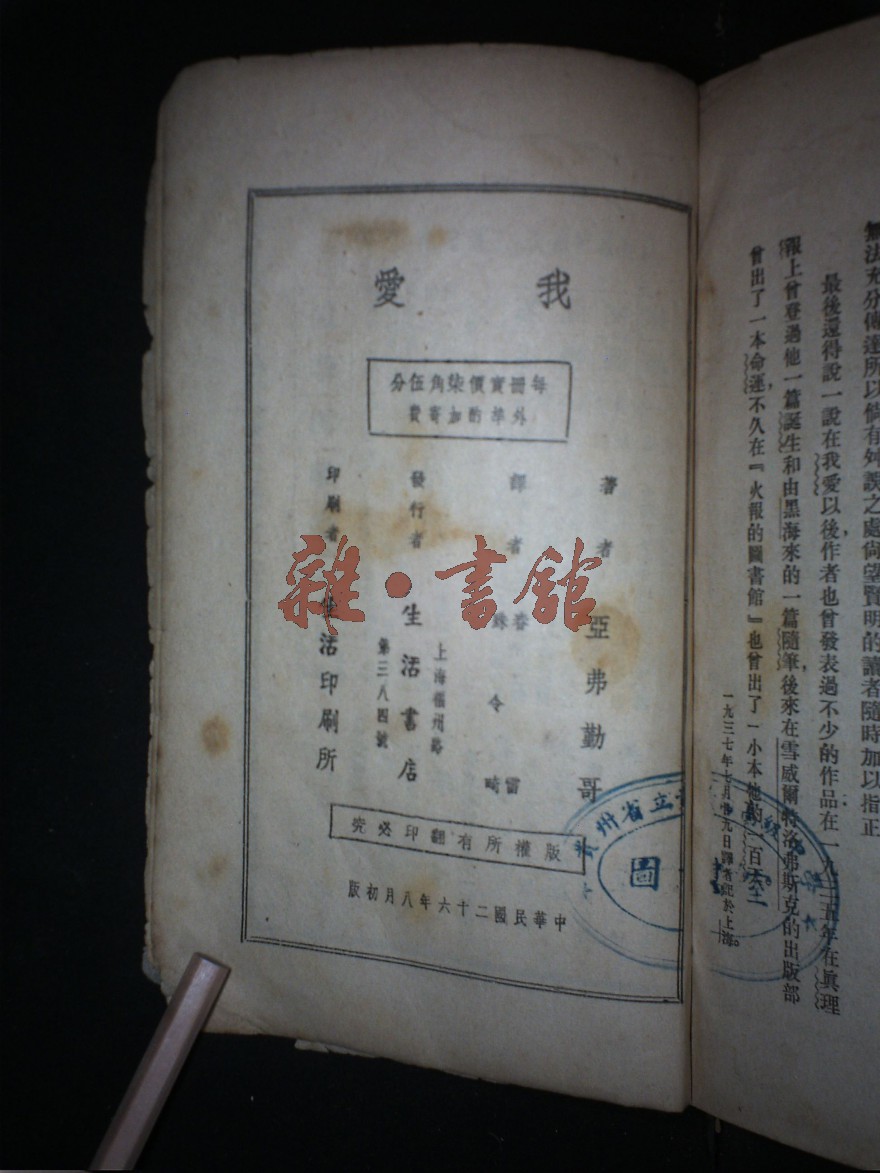 我愛
每冊實價柒角伍分
外埠酌加寄費
著者 亞弗勤哥
譯者
發行者 生活書店
上海福州路
第三八四號
印刷者 生活印刷所
版權所有翻印必究
中華民國二十六年八月初版
雜·書館
無法充分傳達所以倘有舛誤之處尚望賢明的讀者隨時加以指正
最後還得說一說在我愛以後作者也曾發表過不少的作品在一九三五年在眞理
報上曾登過他一篇誕生和由黑海來的一篇隨筆後來在雪威爾特洛弗斯克的出版部
曾出了一本命運不久在『火報的圖書館』也曾出了一小本他的一百天。
一九三七年七月廿九日譯者記於上海。
州省立
圖